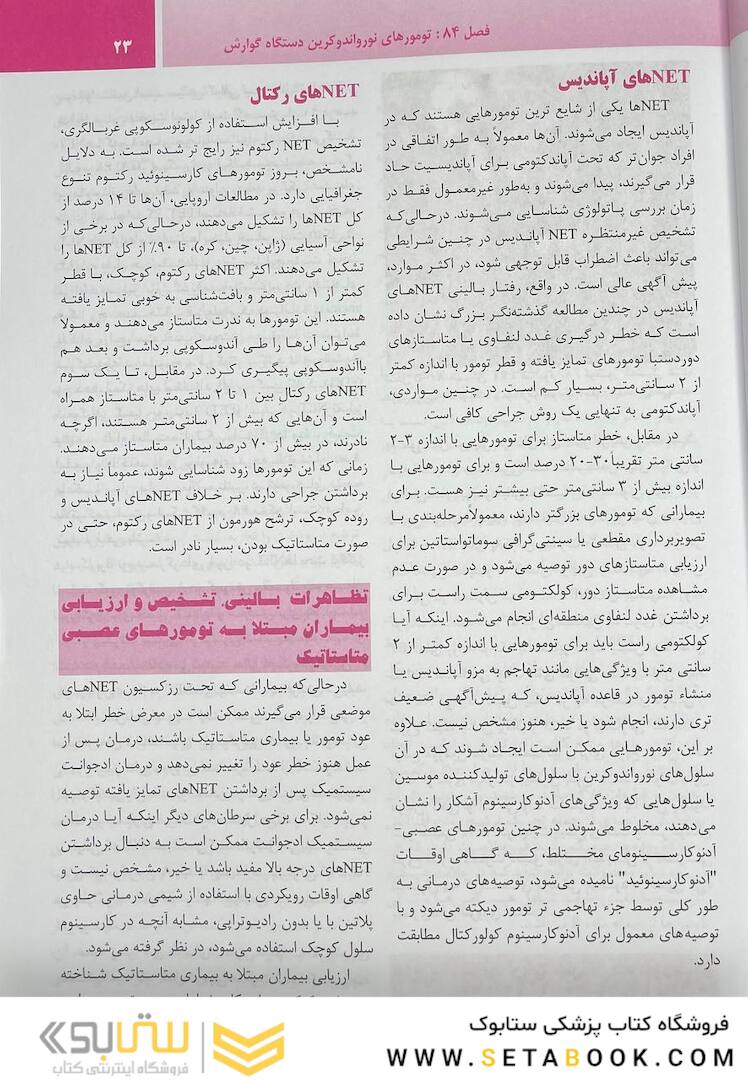 فصل ۸۴: تومورهای نورواندوکرین دستگاه گوارش
۲۳
NETهای آپاندیس
NETها یکی از شایع ترین تومورهایی هستند که در
آپاندیس ایجاد می‌شوند. آن‌ها معمولاً به طور اتفاقی در
افراد جوان‌تر که تحت آپاندکتومی برای آپاندیسیت حاد
قرار می‌گیرند، پیدا می‌شوند و به‌طور غیرمعمول فقط در
زمان بررسی پاتولوژی شناسایی می‌شوند. درحالی‌که
تشخیص غیرمنتظره NET آپاندیس در چنین شرایطی
می‌تواند باعث اضطراب قابل توجهی شود، در اکثر موارد،
پیش آگهی عالی است. در واقع، رفتار بالینی NETهای
آپاندیس در چندین مطالعه گذشته‌نگر بزرگ نشان داده
است که خطر درگیری غدد لنفاوی یا متاستازهای
دوردستبا تومورهای تمایز یافته و قطر تومور با اندازه کمتر
از ۲ سانتی‌متر، بسیار کم است. در چنین مواردی،
آپاندکتومی به تنهایی یک روش جراحی کافی است.
در مقابل، خطر متاستاز برای تومورهایی با اندازه ۳-۲
سانتی متر تقریباً ۳۰-۲۰ درصد است و برای تومورهایی با
اندازه بیش از ۳ سانتی‌متر حتی بیشتر نیز هست. برای
بیمارانی که تومورهای بزرگتر دارند، معمولاًمرحله‌بندی با
تصویربرداری مقطعی یا سینتی‌گرافی سوماتواستاتین برای
ارزیابی متاستازهای دور توصیه می‌شود و در صورت عدم
مشاهده متاستاز دور، کولکتومی سمت راست برای
برداشتن غدد لنفاوی منطقه‌ای انجام می‌شود. اینکه آیا
کولکتومی راست باید برای تومورهایی با اندازه کمتر از ۲
سانتی متر با ویژگی‌هایی مانند تهاجم به مزو آپاندیس یا
منشاء تومور در قاعده آپاندیس، که پیش‌آگهی ضعیف
تری دارند، انجام شود یا خیر، هنوز مشخص نیست. علاوه
بر این، تومورهایی ممکن است ایجاد شوند که در آن
سلول‌های نورواندوکرین با سلول‌های تولیدکننده موسین
یا سلول‌هایی که ویژگی‌های آدنوکارسینوم آشکار را نشان
می‌دهند، مخلوط می‌شوند. در چنین تومورهای عصبی-
آدنوکارسینومای مختلط، که گاهی اوقات
"آدنوکارسینوئید" نامیده می‌شود، توصیه‌های درمانی به
طور کلی توسط جزء تهاجمی تر تومور دیکته می‌شود و با
توصیه‌های معمول برای آدنوکارسینوم کولورکتال مطابقت
دارد.
NETهای رکتال
با افزایش استفاده از کولونوسکوپی غربالگری،
تشخیص NET رکتوم نیز رایج تر شده است. به دلایل
نامشخص، بروز تومورهای کارسینوئید رکتوم تنوع
جغرافیایی دارد. در مطالعات اروپایی، آن‌ها تا ۱۴ درصد از
کل NETها را تشکیل می‌دهند، درحالی‌که در برخی از
نواحی آسیایی (ژاپن، چین، کره)، تا ۹۰٪ از کل NETها را
تشکیل می‌دهند. اکثر NETهای رکتوم، کوچک، با قطر
کمتر از ۱ سانتی‌متر و بافت‌شناسی به خوبی تمایز یافته
هستند. این تومورها به ندرت متاستاز می‌دهند و معمولاً
می‌توان آن‌ها را طی آندوسکوپی برداشت و بعد هم
باآندوسکوپی پیگیری کرد. در مقابل، تا یک سوم
NETهای رکتال بین ۱ تا ۲ سانتی‌متر با متاستاز همراه
است و آن‌هایی که بیش از ۲ سانتی‌متر هستند، اگرچه
نادرند، در بیش از ۷۰ درصد بیماران متاستاز می‌دهند.
زمانی که این تومورها زود شناسایی شوند، عموماً نیاز به
برداشتن جراحی دارند. بر خلاف NETهای آپاندیس و
روده کوچک، ترشح هورمون از NETهای رکتوم، حتی در
صورت متاستاتیک بودن، بسیار نادر است.
تظاهرات بالینی، تشخیص و ارزیابی
بیماران مبتلا به تومورهای عصبی
متاستاتیک
درحالی‌که بیمارانی که تحت رزکسیون NETهای
موضعی قرار می‌گیرند ممکن است در معرض خطر ابتلا به
عود تومور یا بیماری متاستاتیک باشند، درمان پس از
عمل هنوز خطر عود را تغییر نمی‌دهد و درمان ادجوانت
سیستمیک پس از برداشتن NETهای تمایز یافته توصیه
نمی‌شود. برای برخی سرطان‌های دیگر اینکه آیا درمان
سیستمیک ادجوانت ممکن است به دنبال برداشتن
NETهای درجه بالا مفید باشد یا خیر، مشخص نیست و
گاهی اوقات رویکردی با استفاده از شیمی درمانی حاوی
پلاتین با یا بدون رادیوتراپی، مشابه آنچه در کارسینوم
سلول کوچک استفاده می‌شود، در نظر گرفته می‌شود.
ارزیابی بیماران مبتلا به بیماری متاستاتیک شناخته
فروشگاه کتاب پزشکی ستابوک
WWW.SETABOOK.COM
ستابوک
فروشگاه اینترنتی کتاب